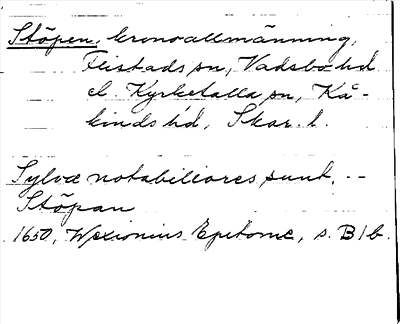 Stöpen, kronoallmänning,
Flistads sn, Vadsbo hd
el. Kyrketalla sn, Kå-
kinds hd, Skar. l.
Sylvæ notabiliores sunt. --
Stöpan
1650, Wexionius Epitome, s. B1b.